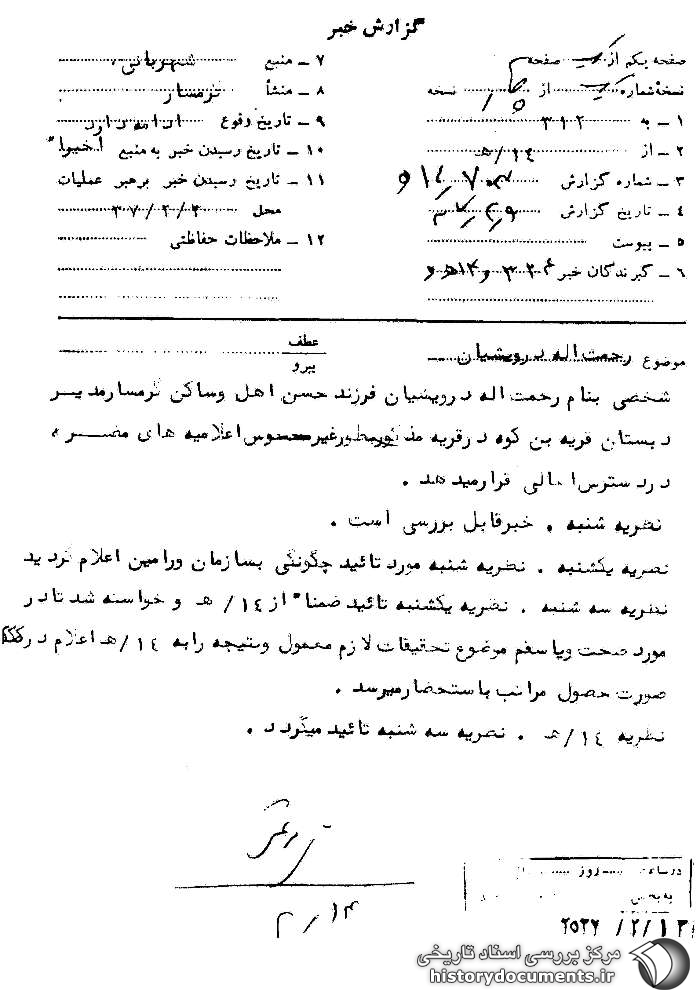 گزارش خبر
صفحه یکم از یک صفحه
نسخهٔ شماره یک از نسخه
۱ ـ به ۳۱۲
۲ ـ از ۱۴/ هـ
۳ ـ شماره گزارش
۴ ـ تاریخ گزارش
۵ ـ پیوست
۶ ـ گیرندگان خبر
۷ ـ منبع شهربانی
۸ ـ منشأ گرمسار
۹ ـ تاریخ وقوع ادامه دارد
۱۰ ـ تاریخ رسیدن خبر به منبع اخیرا"
۱۱ ـ تاریخ رسیدن خبر برهبر عملیات
محل ۳۷/۲/۲
۱۲ ـ ملاحظات حفاظتی
موضوع رحمت اله درویشیان
عطف
پیرو
شخصی بنام رحمت اله درویشیان فرزند حسن اهل وساکن گرمسار مدیر
دبستان قریه بن کوه در قریه مذکور بطور غیر محسوس اعلامیه های مضره
در دسترس اهالی قرار میدهد .
نظریه شنبه . خبر قابل بررسی است .
نظریه یکشنبه . نظریه شنبه مورد تائید چگونگی بسازمان ورامین اعلام گردید
نظریه سه شنبه . نظریه یکشنبه تائید ضمنا" از ۱۴/ هـ و خواسته شد تا در
مورد صحت ویا سقم موضوع تحقیقات لازم معمول ونتیجه را به ۱۴/ هـ اعلام در
صورت حصول مراتب باستحضار میرسد .
نظریه ۱۴/ هـ . نظریه سه شنبه تائید میگردد .
۲/۱۴
در ساعت روز
به بخش
۲۵۳۷/۲/۱۲
مرکز بررسی اسناد تاریخی
historydocuments.ir